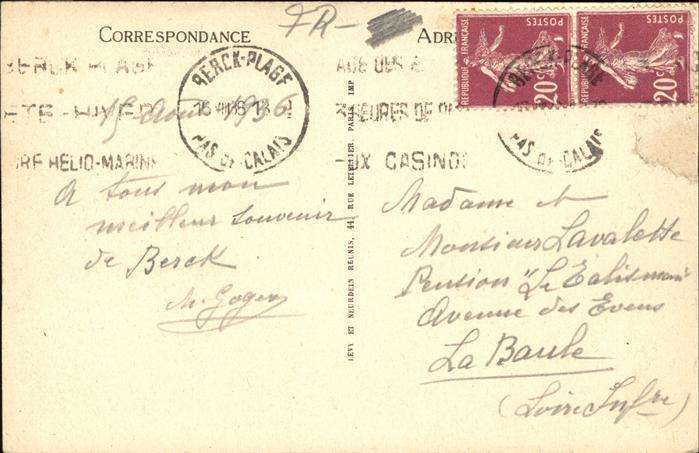 CORRESPONDANCE
FR-
BERCK-PLAGE
ETE-HIVER
HELIO-MARINE
BERCK-PLAGE
PAS DE CALAIS
HEURES DE
CASINOS
PAS DE CALAIS
POSTES
REPUBLIQUE FRANÇAISE
20c
POSTES
REPUBLIQUE FRANÇAISE
20c
15 Août 1936
A tous mon
meilleur souvenir
de Berck
M. Goger
LEVY ET NEURDEIN RÉUNIS, 44, RUE LETELLIER, PARIS, IMP
Madame et
Monsieur Lavalette
Pension "Le Talisman"
Avenue des Evens
La Baule
(Loire Infre)